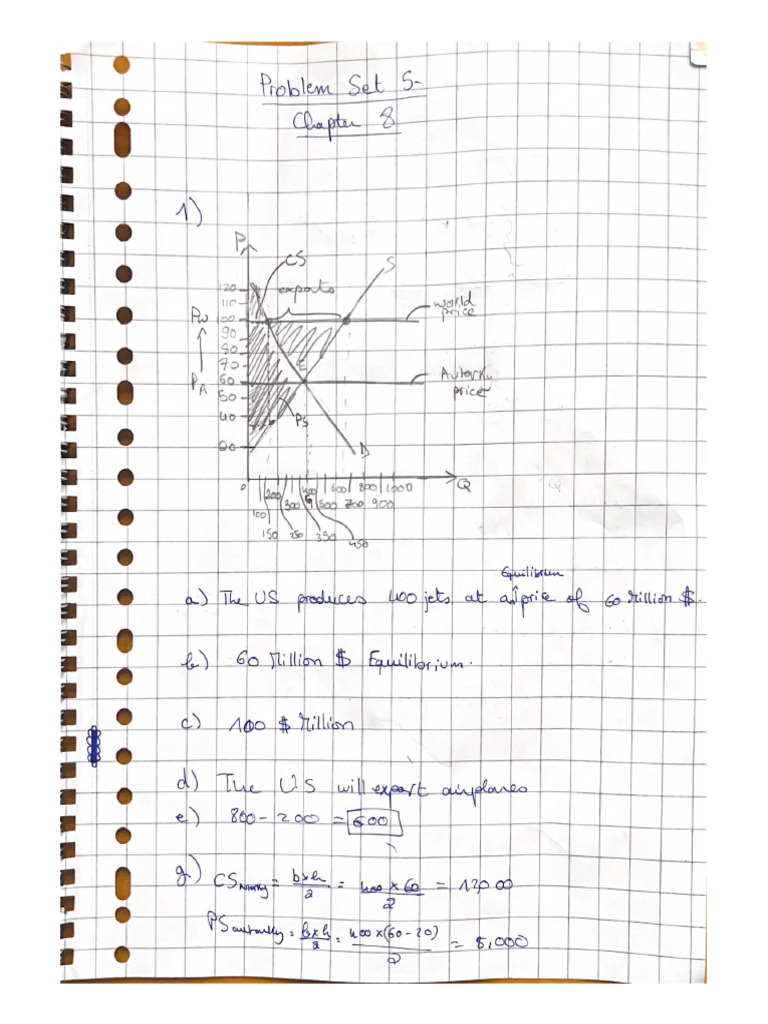 Problem Set 5-
Chapter 8
1)
P
CS
S
120
exports
110
world price
Pw 100
90
80
70
E
Autarky price
PA 60
50
40
PS
20
D
0
Q
200
400
600
800
1000
100
300
500
700
900
150
250
350
450
Equilibrium
a) The US produces 400 jets at an price of 60 Million $.
b) 60 Million $ Equilibrium.
c) 100 $ Million
d) The US will export airplanes
e) 800 - 200 = 600
g) CS = bxh/2 = 400 x 60/2 = 12000
PS autarky = bxh/2 = 400x(60-20)/2 = 8,000